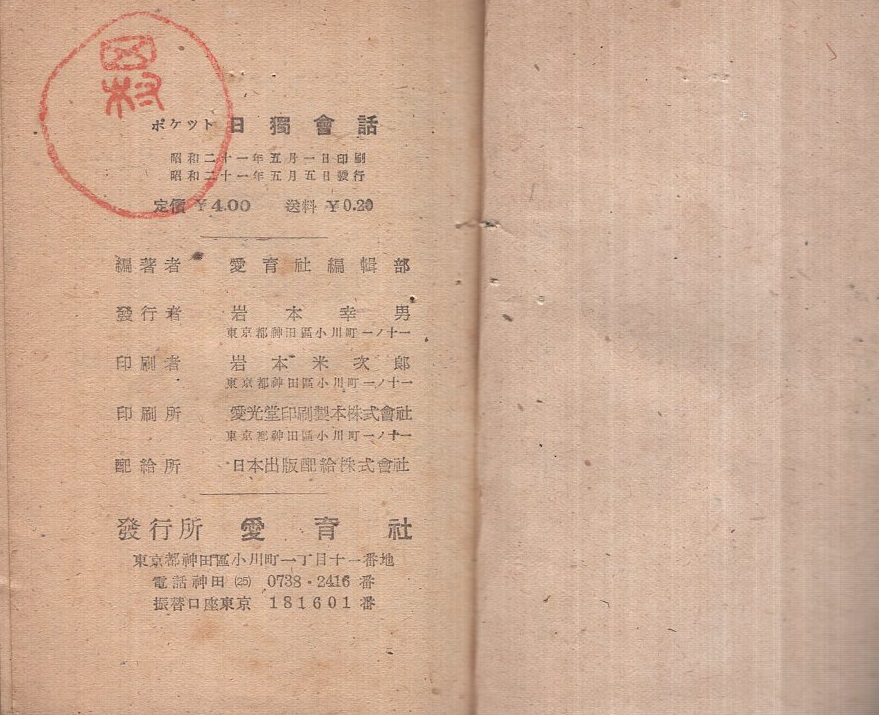 ポケット 日獨會話
昭和二十一年五月一日印刷
昭和二十一年五月五日發行
定價 ¥4.00 送料 ¥0.20
編著者 愛育社編輯部
發行者 岩本幸男
東京都神田區小川町一ノ十一
印刷者 岩本米次郎
東京都神田區小川町一ノ十一
印刷所 愛光堂印刷製本株式會社
東京都神田區小川町一ノ十一
配給所 日本出版配給株式會社
發行所 愛育社
東京都神田區小川町一丁目十一番地
電話神田(25) 0738・2416番
振替口座東京 181601番